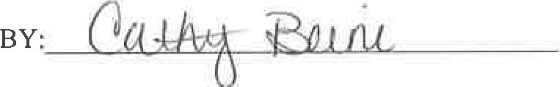 BY: Cathy Beine